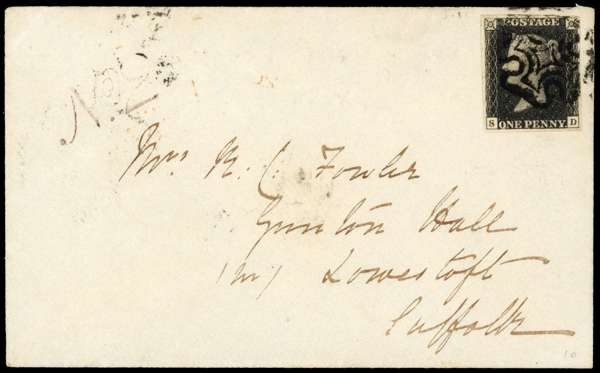 POSTAGE
S ONE PENNY D
Mrs R. C. Fowler
Gunton Hall
(nr) Lowestoft
Suffolk
10